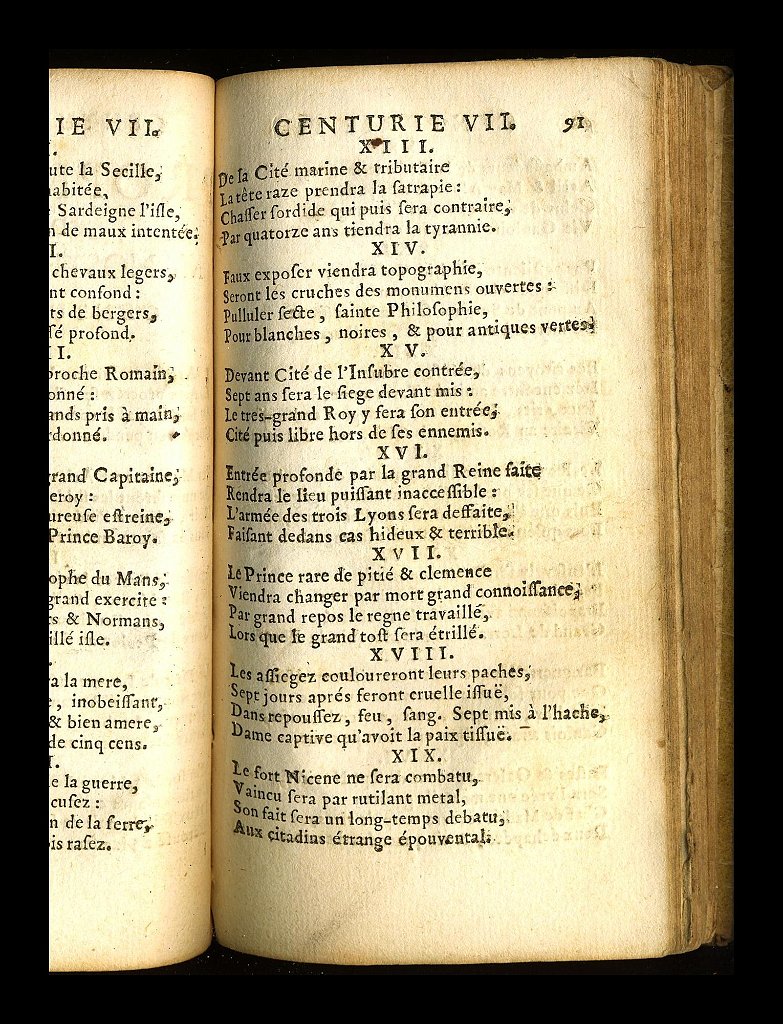 IE VII.
ute la Secille,
habitée,
Sardeigne l'iſle,
n de maux intentée.
I.
chevaux legers,
nt confond :
ts de bergers,
ſé profond.
II.
proche Romain,
onné :
ands pris à main,
rdonné.
rand Capitaine,
eroy :
ureuse eſtreine,
Prince Baroy.
ophe du Mans,
grand exercite :
rs & Normans,
illé iſle.
a la mere,
, inobeiſſant,
& bien amere,
de cinq cens.
I.
e la guerre,
cuſez :
n de la ſerre,
is raſez.
CENTURIE VII. 91
XIII.
De ſa Cité marine & tributaire
La tête raze prendra la ſatrapie :
Chaſſer ſordide qui puis ſera contraire,
Par quatorze ans tiendra la tyrannie.
XIV.
Faux expoſer viendra topographie,
Seront les cruches des monumens ouvertes :
Pulluler ſecte , ſainte Philoſophie,
Pour blanches , noires , & pour antiques vertes.
XV.
Devant Cité de l'Inſubre contrée,
Sept ans ſera le ſiege devant mis :
Le tres-grand Roy y fera ſon entrée,
Cité puis libre hors de ſes ennemis.
XVI.
Entrée profonde par la grand Reine faite
Rendra le lieu puiſſant inacceſſible :
L'armée des trois Lyons ſera deffaite,
Faiſant dedans cas hideux & terrible.
XVII.
Le Prince rare de pitié & clemence
Viendra changer par mort grand connoiſſance,
Par grand repos le regne travaillé,
Lors que le grand toſt ſera étrillé.
XVIII.
Les aſſiegez couloureront leurs paches,
Sept jours aprés feront cruelle iſſuë,
Dans repouſſez , feu , ſang. Sept mis à l'hache,
Dame captive qu'avoit la paix tiſſuë.
XIX.
Le fort Nicene ne ſera combatu,
Vaincu ſera par rutilant metal,
Son fait ſera un long-temps debatu,
Aux citadins étrange épouvental.